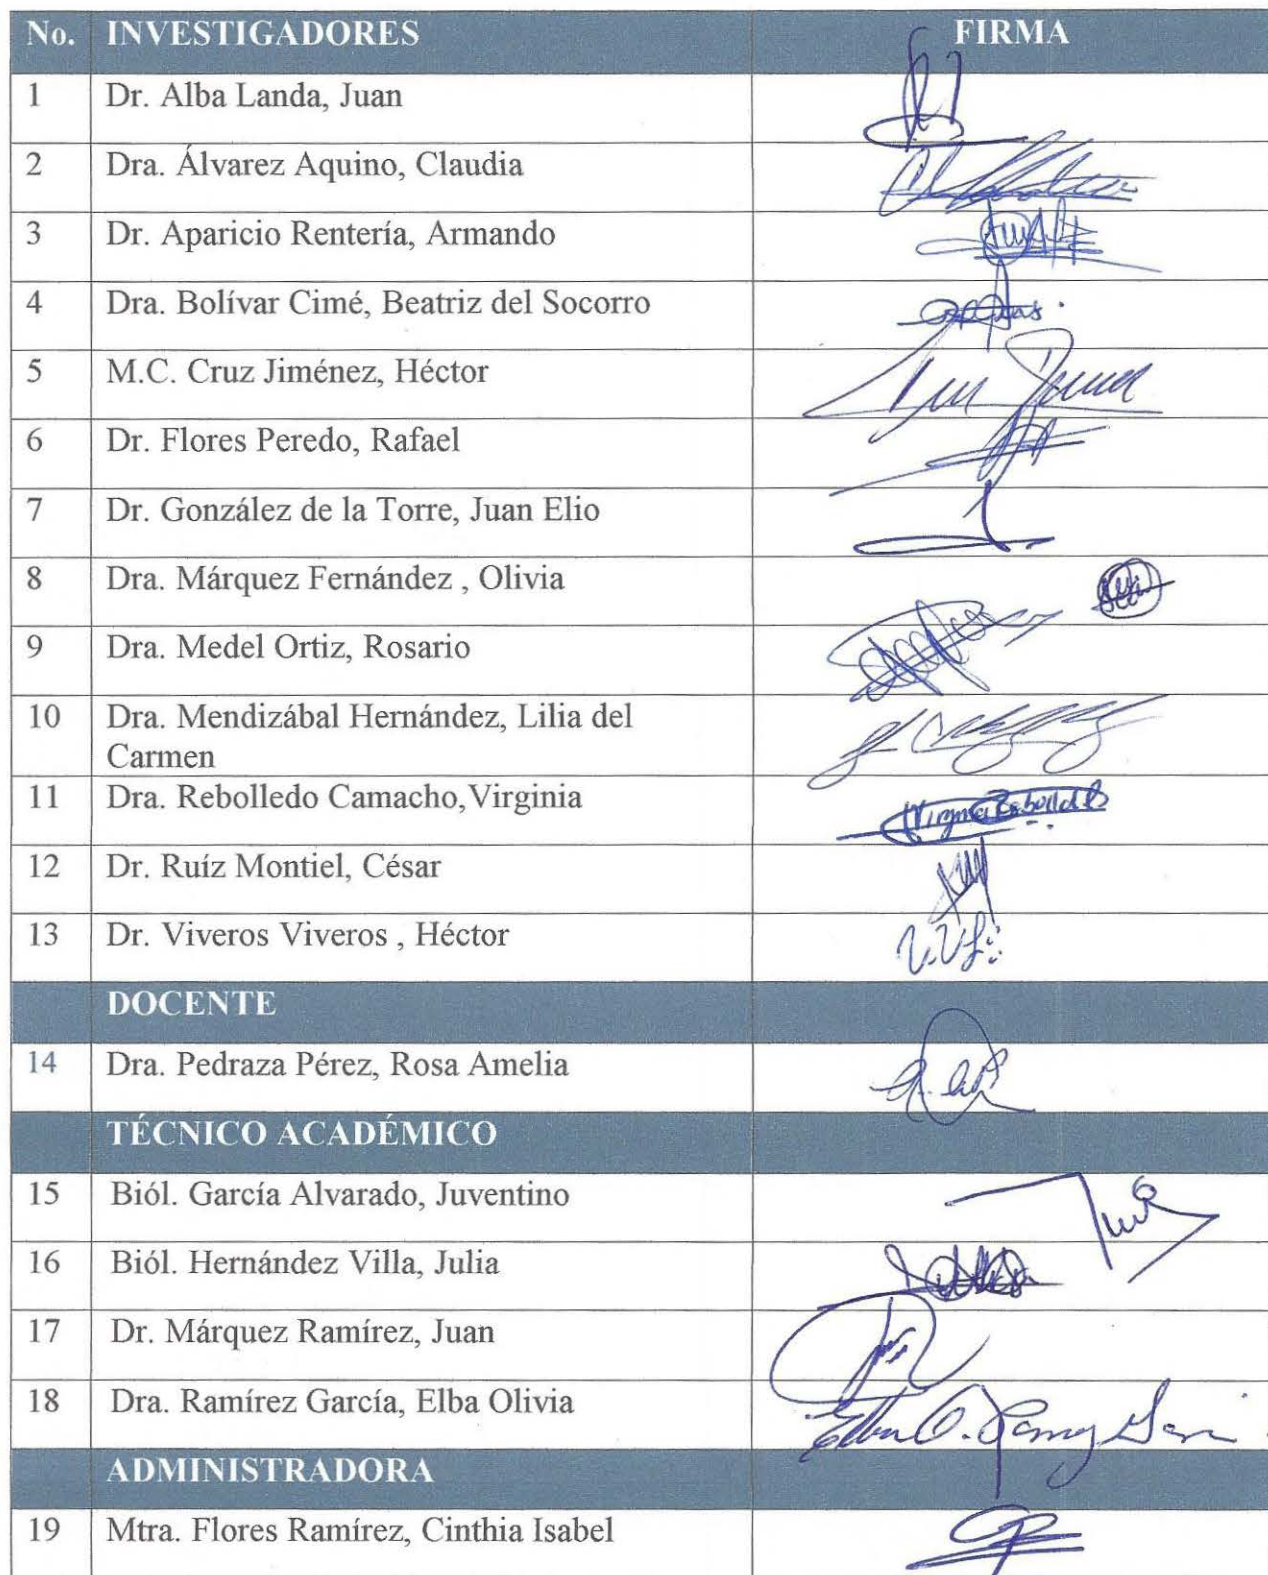 No. INVESTIGADORES FIRMA
1 Dr. Alba Landa, Juan
2 Dra. Álvarez Aquino, Claudia
3 Dr. Aparicio Rentería, Armando
4 Dra. Bolívar Cimé, Beatriz del Socorro
5 M.C. Cruz Jiménez, Héctor
6 Dr. Flores Peredo, Rafael
7 Dr. González de la Torre, Juan Elio
8 Dra. Márquez Fernández , Olivia
9 Dra. Medel Ortiz, Rosario
10 Dra. Mendizábal Hernández, Lilia del
Carmen
11 Dra. Rebolledo Camacho,Virginia
12 Dr. Ruíz Montiel, César
13 Dr. Viveros Viveros , Héctor
DOCENTE
14 Dra. Pedraza Pérez, Rosa Amelia
TÉCNICO ACADÉMICO
15 Biól. García Alvarado, Juventino
16 Biól. Hernández Villa, Julia
17 Dr. Márquez Ramírez, Juan
18 Dra. Ramírez García, Elba Olivia
ADMINISTRADORA
19 Mtra. Flores Ramírez, Cinthia Isabel